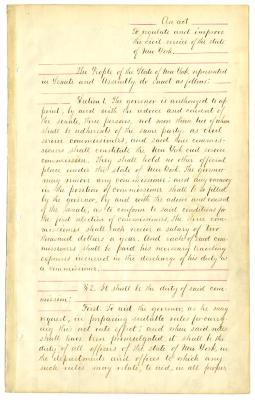 An act
to regulate and improve
the civil service of the state
of New York.
The People of the State of New York, represented
in Senate and Assembly, do enact as follows:
Section 1. The governor is authorized to ap-
point, by and with the advice and consent of
the senate, three persons, not more than two of whom
shall be adherents of the same party, as civil
service commissioners, and said three commis-
sioners shall constitute the New York civil service
commission. They shall hold no other official
place under the state of New York. The Governor
may remove any commissioner; and any vacancy
in the position of commissioner shall be so filled
by the governor, by and with the advice and consent
of the Senate, as to conform to said conditions for
the first selection of commissioners. The three com-
missioners shall each receive a salary of two
thousand dollars a year. And each of said com-
missioners shall be paid his necessary traveling
expenses incurred in the discharge of his duty as
a commissioner.
§2. It shall be the duty of said com-
mission:
First. To aid the governor, as he may
request, in preparing suitable rules for carry-
ing this act into effect; and when said rules
shall have been promulgated it shall be the
duty of all officers of the state of New York, in
the departments and offices to which any
such rules may relate, to aid, in all proper